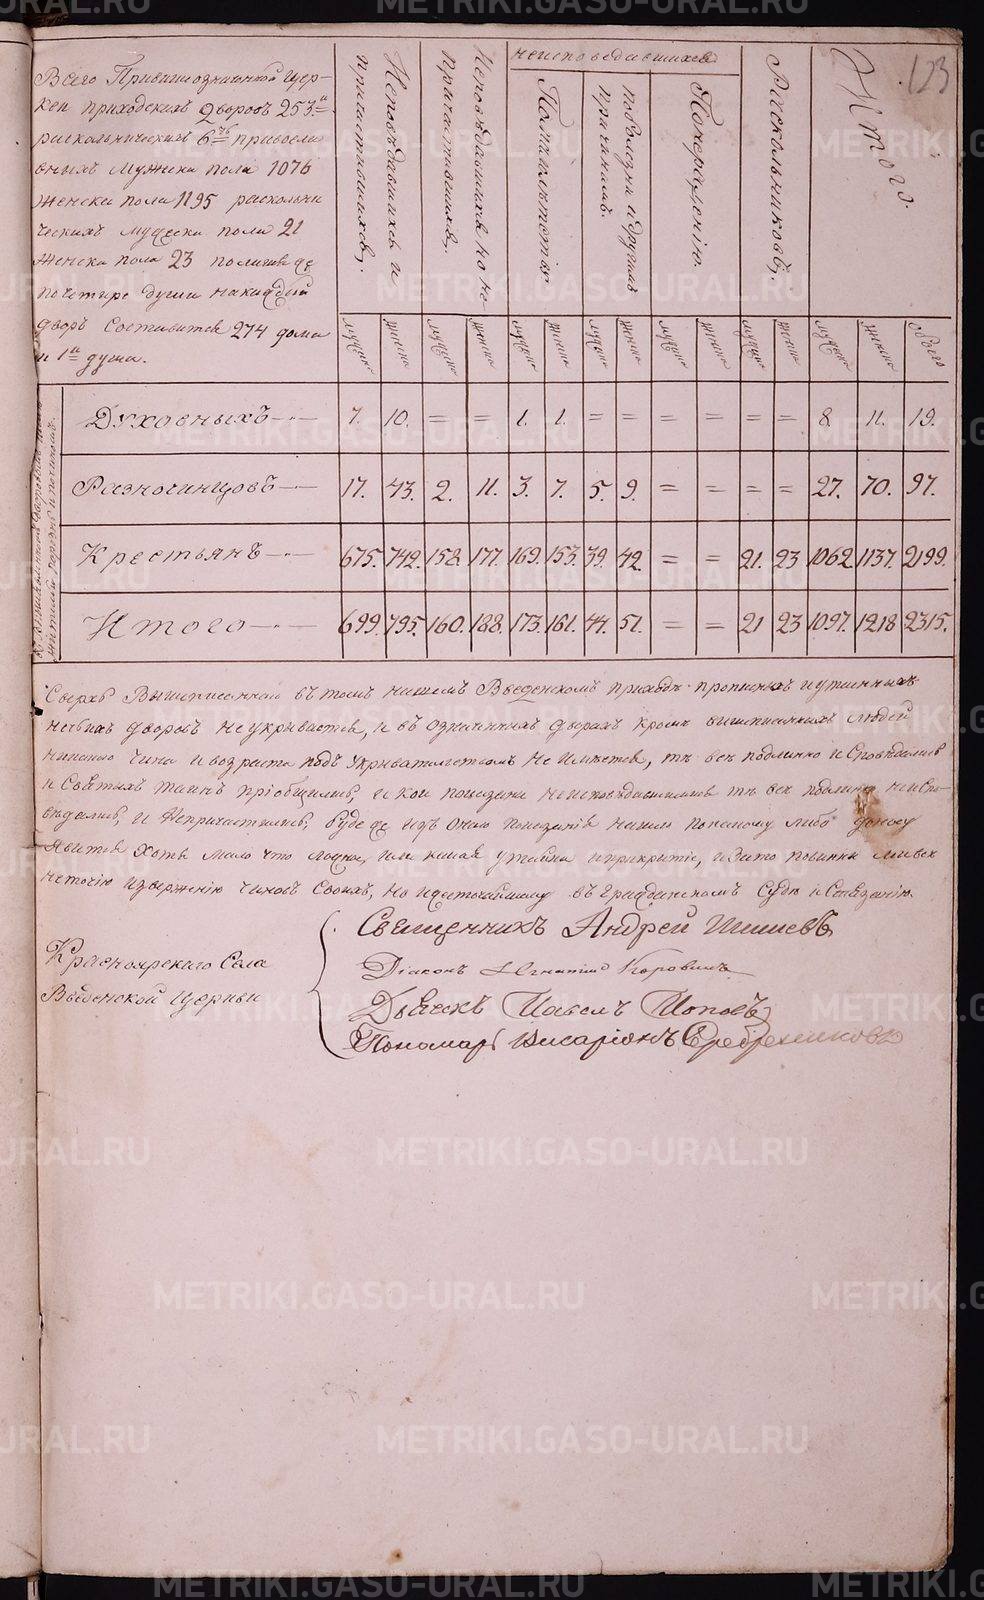 123
Всего Привышеозначенной Цер-
кви приходскихъ Дворовъ 253.
раскольническихъ 6 правосла
вныхъ мужеска пола 1076
женска пола 1195 расколни
ческихъ мужеска пола 21
женска пола 23 полагая же
по четыре души на каждый
дворъ Составится 274 дома
и 1 душа.
Исповѣдавшихся и
причастившихся,
Исповѣдавшихся но не
причастившихся,
неисповедавшихся
Помалолѣтству
Раскольниковъ,
Итого.
мужска женска мужска женска мужска женска мужска женска мужска женска мужска женска мужска женска обоего
Духовныхъ 7. 10. = = 1. 1. = = = = = = 8. 11. 19.
Разночинцовъ 17. 43. 2. 11. 3. 7. 5. 9. = = = = 27. 70. 97.
Крестьянъ 675. 742. 158. 177. 169. 153. 39. 42. = = 21. 23 1062. 1137. 2199.
Итого 699. 795. 160. 188. 173. 161. 44. 51. = = 21 23 1097. 1218 2315.
Сверхъ Вышеписаннаго въ томъ нашемъ Введенскомъ приходѣ прописныхъ и утаенныхъ
дворовъ неукрывается, и въ означенныхъ дворахъ кромѣ вышеписанныхъ людей
чина и возраста подъ укрывательствомъ не имѣется, тѣ всѣ подлинно исповѣдались
и Святыхъ таинъ пріобщились, а кои показаны неисповѣдавшимися тѣ всѣ подлинно неиспо-
вѣдались, и непричастились, буде же изъ онаго показанія по какому либо доносу
явится хотя мало что ложно, или какая утайка и прикрытіе, и зато повинны мы всѣ
неточію изверженію чиновъ своихъ, но и жесточайшему въ Гражданскомъ Судѣ истязанію.
Красноярскаго Села
Введенской Церкви
Священникъ Андрей Шишевъ
Діаконъ Игнатій
Дьячекъ Павелъ Поповъ
Пономарь Висаріонъ Серебрениковъ
METRIKI.GASO-URAL.RU